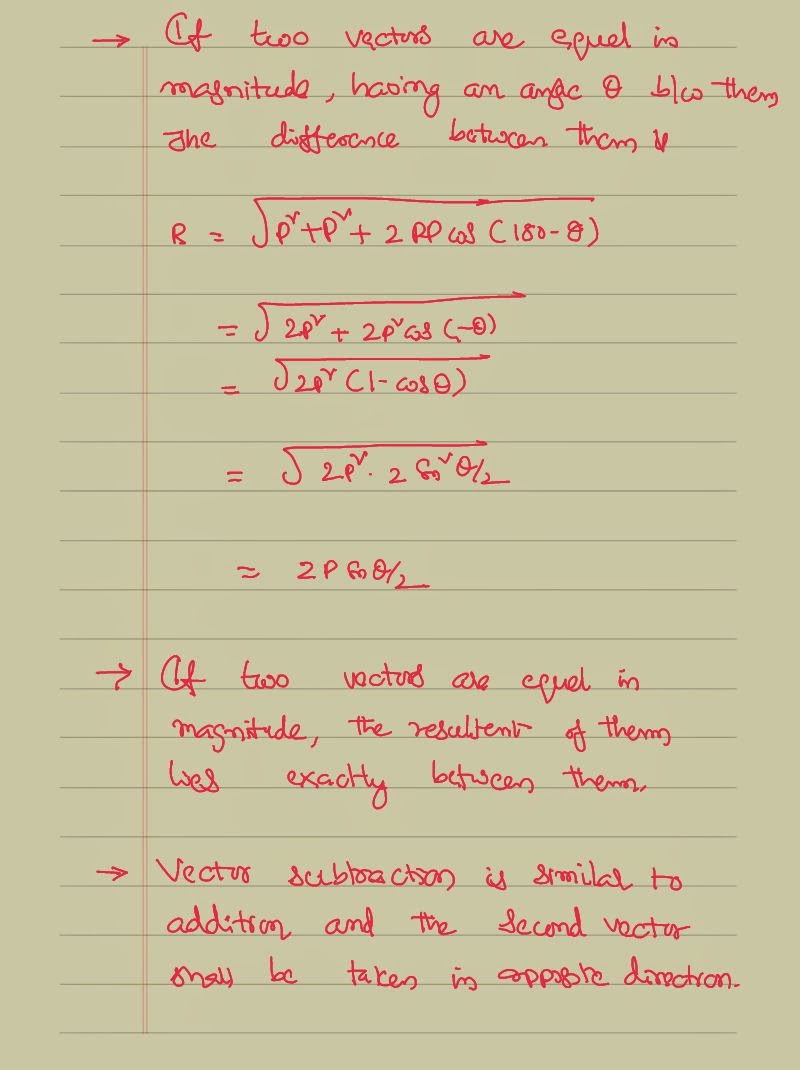 → If two vectors are equel in
magnitude, having an angle θ b/w them
The difference between them is
R = √(P² + P² + 2 PP cos (180 - θ))
= √(2P² + 2P² cos (-θ))
= √(2P² (1 - cos θ))
= √(2P² . 2 sin² θ/2)
= 2 P sin θ/2
→ If two vectors are equel in
magnitude, the resultent of them
lies exactly between them.
→ Vector subtraction is similar to
addition and the second vector
shall be taken in opposite direction.